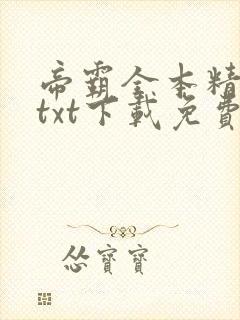 帝霸全本精
txt下載免費
慫寶寶